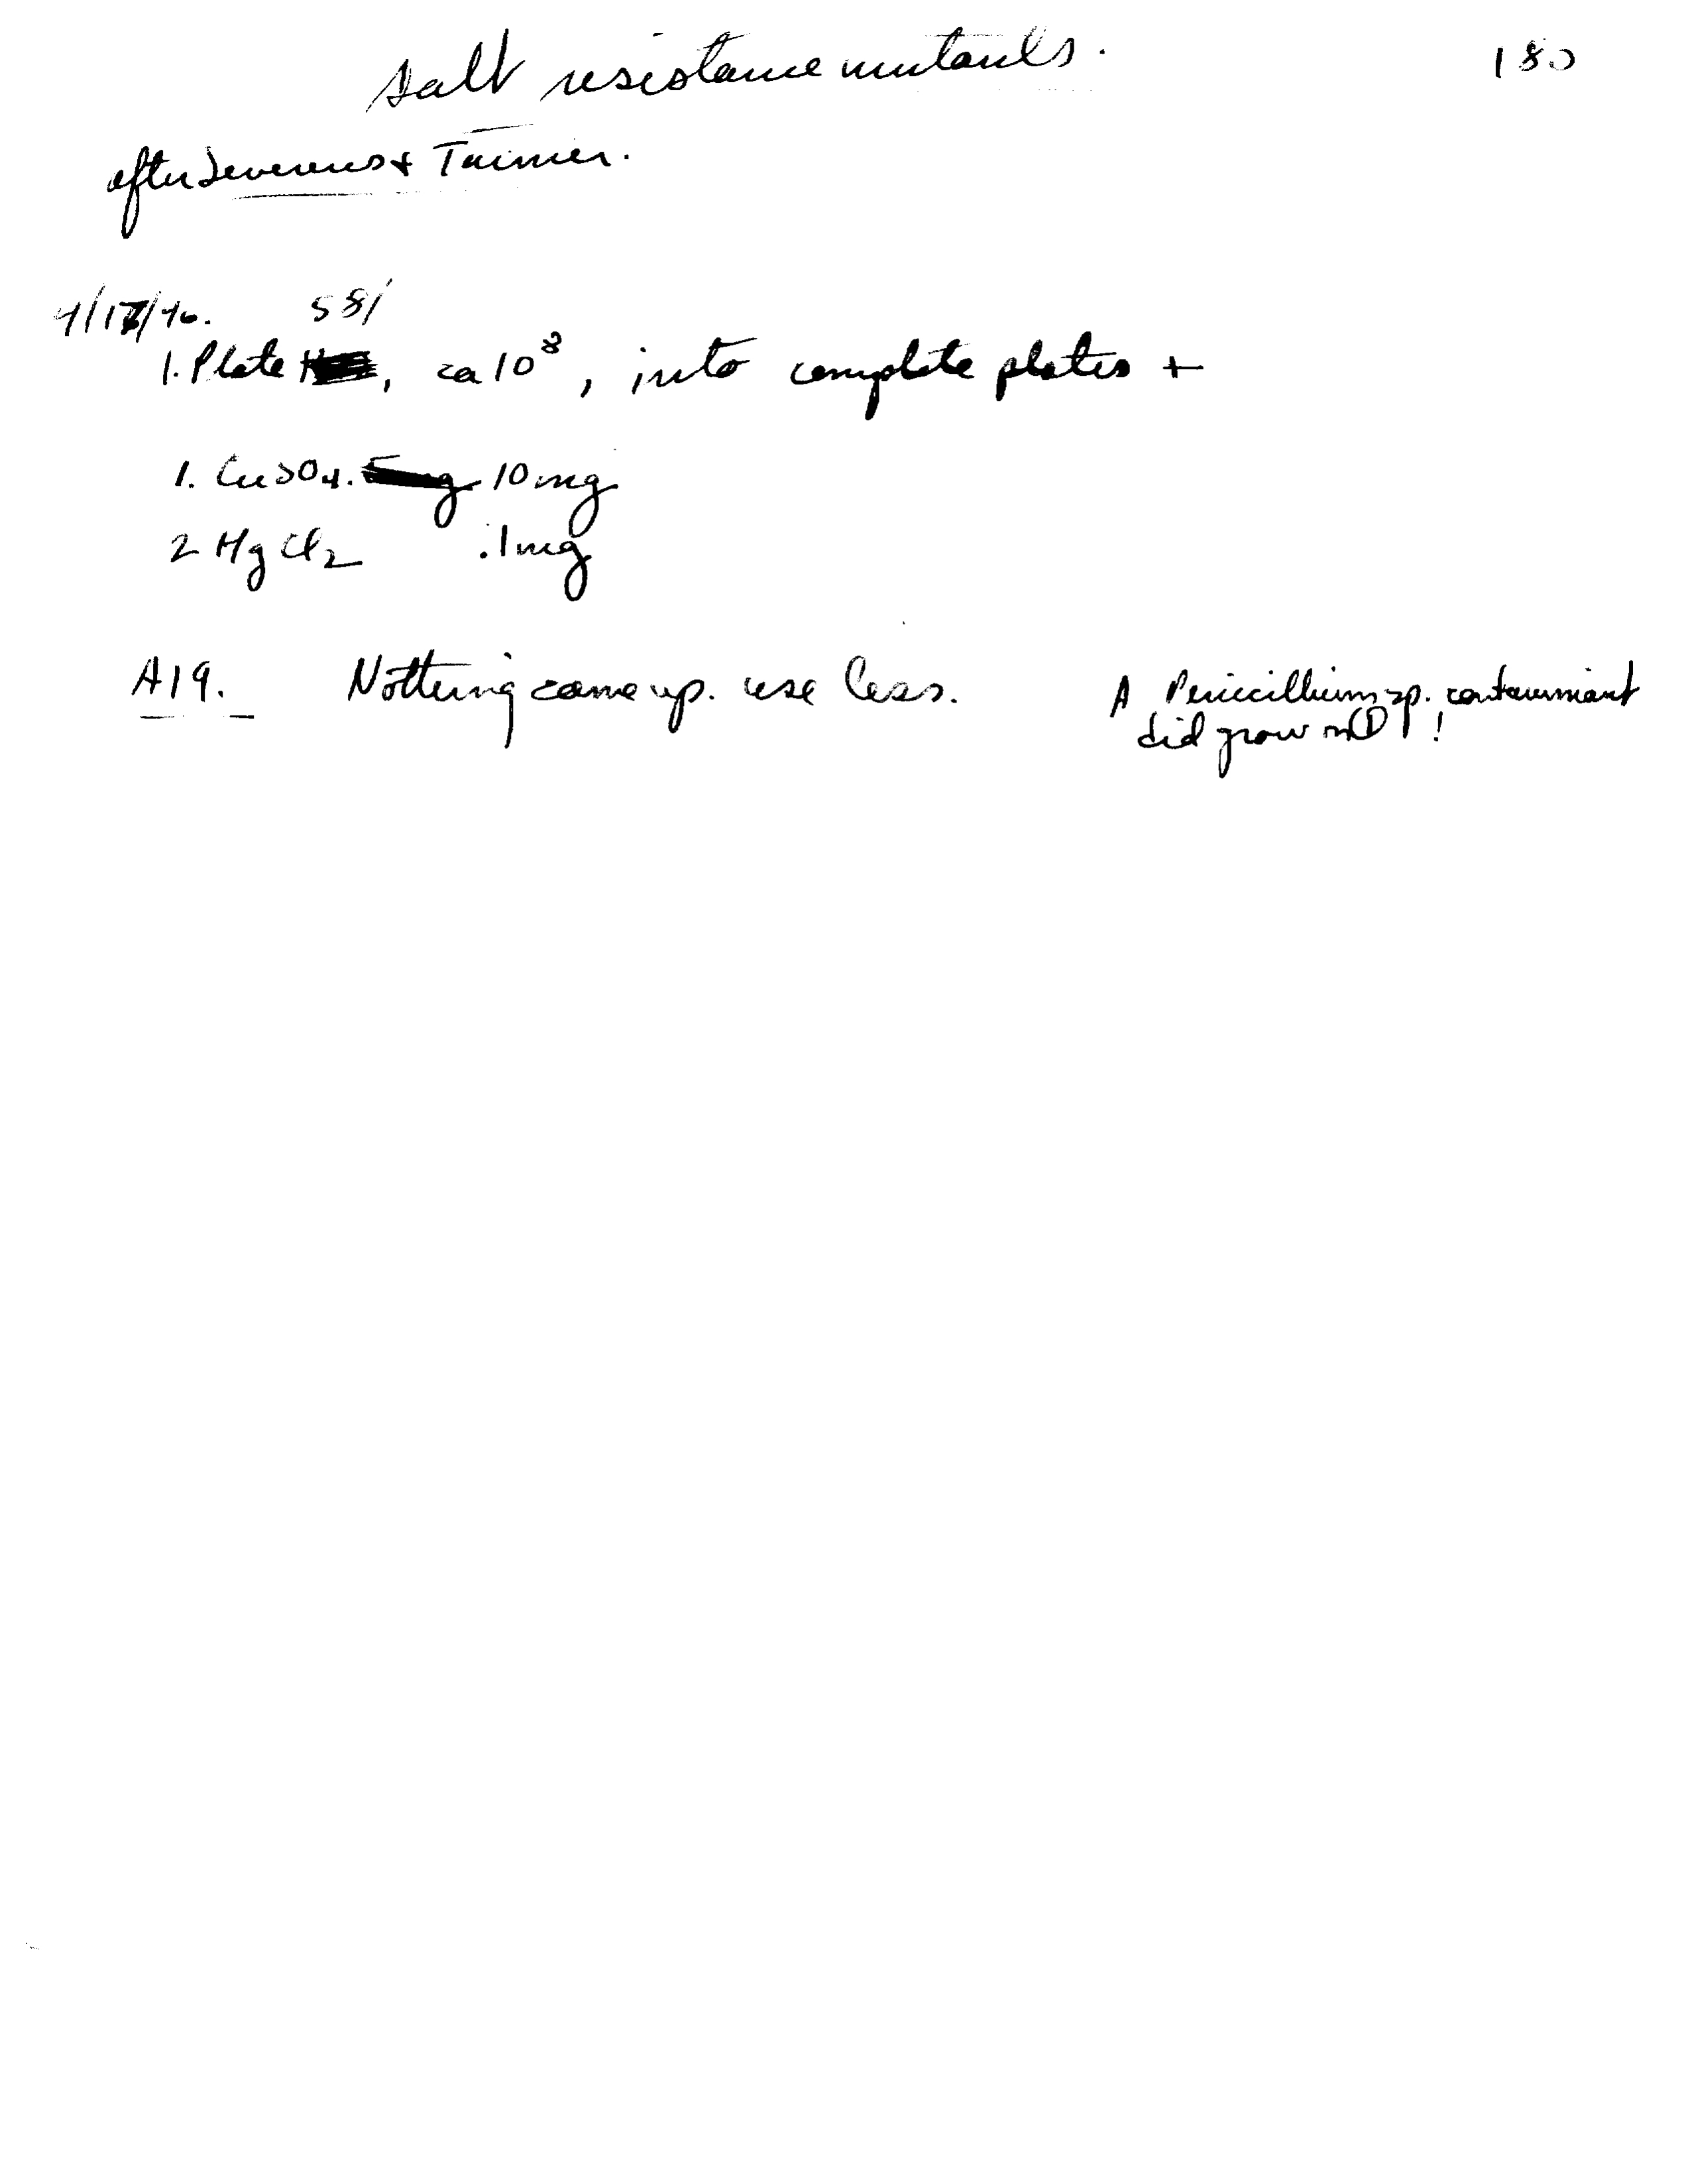 Salt resistance mutants.
180
after Severens + Tanner.
4/17/46. 58161
1. Plate , ca 10⁸, into complete plates +
1. CuSO₄. 10 mg
2 HgCl₂ .1 mg
A19. Nothing came up. use less.
A Penicillium sp. contaminant
did grow on ① !